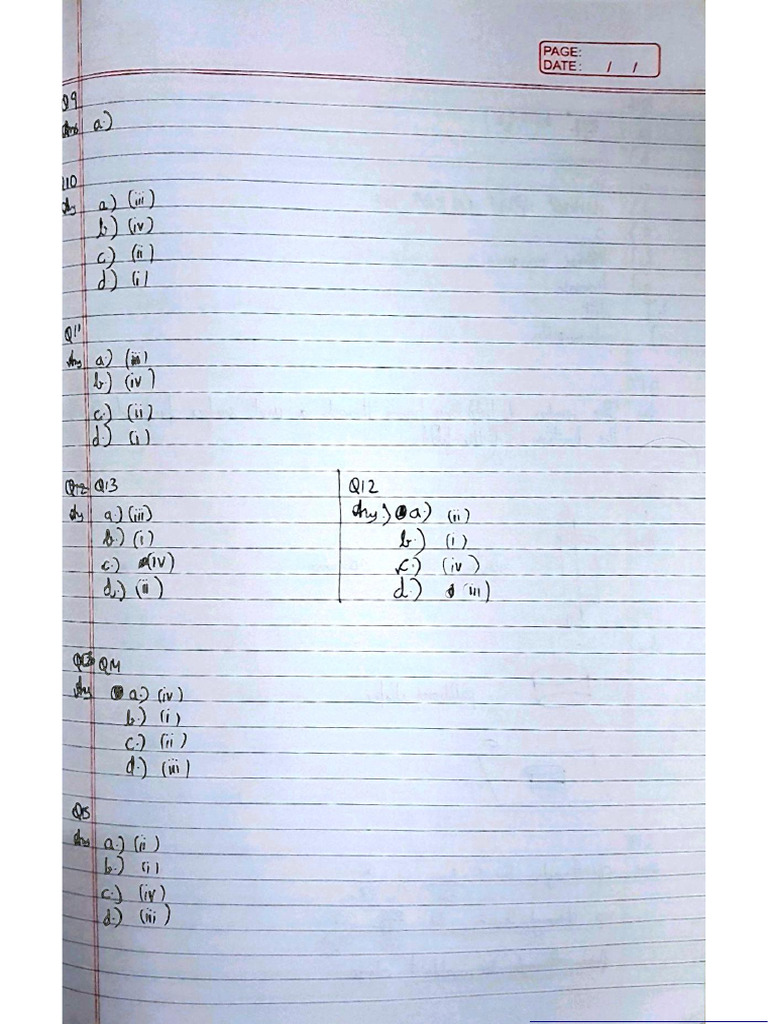 PAGE:
DATE: / /
Q9
Ans a.)
Q10
Ans a.) (iii)
b.) (iv)
c.) (ii)
d.) (i)
Q11
Ans a.) (iii)
b.) (iv)
c.) (ii)
d.) (i)
Q13
Ans a.) (iii)
b.) (i)
c.) (iv)
d.) (ii)
Q12
Ans.) a.) (ii)
b.) (i)
c.) (iv)
d.) (iii)
Q14
Ans a.) (iv)
b.) (i)
c.) (ii)
d.) (iii)
Q15
Ans a.) (ii)
b.) (i)
c.) (iv)
d.) (iii)